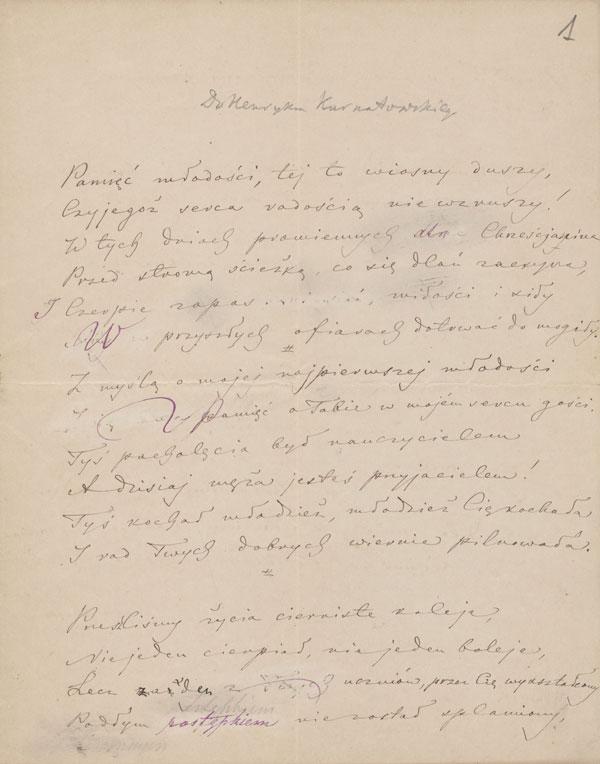 1
Do Henryka Kurnatowskieg
Pamięć młodości, tej to wiosny duszy,
Czyjegóż serca radością nie wzruszy!
W tych dniach promiennych dla Chrześcjanina
Przed stromą ścieżką, co się dlań zaczyna,
I Czerpie zapas miłości i siły
W przyszłych ofiarach dotrwać do mogiły.
#
Z myślą o mojej najpierwszej młodości
I Pamięć o Tobie w mojém sercu gości.
Tyś pacholęcia był nauczycielem
A dzisiaj męża jesteś przyjacielem!
Tyś kochał młodzież, młodzież Cię kochała
I rad Twych dobrych wiernie pilnowała.
#
Przeszliśmy życia cierniste koleje,
Nie jeden cierpiał, nie jeden boleje,
Lecz żaden z uczniów, przez Cię wykształcony
Podłym postępkiem nie został splamiony,